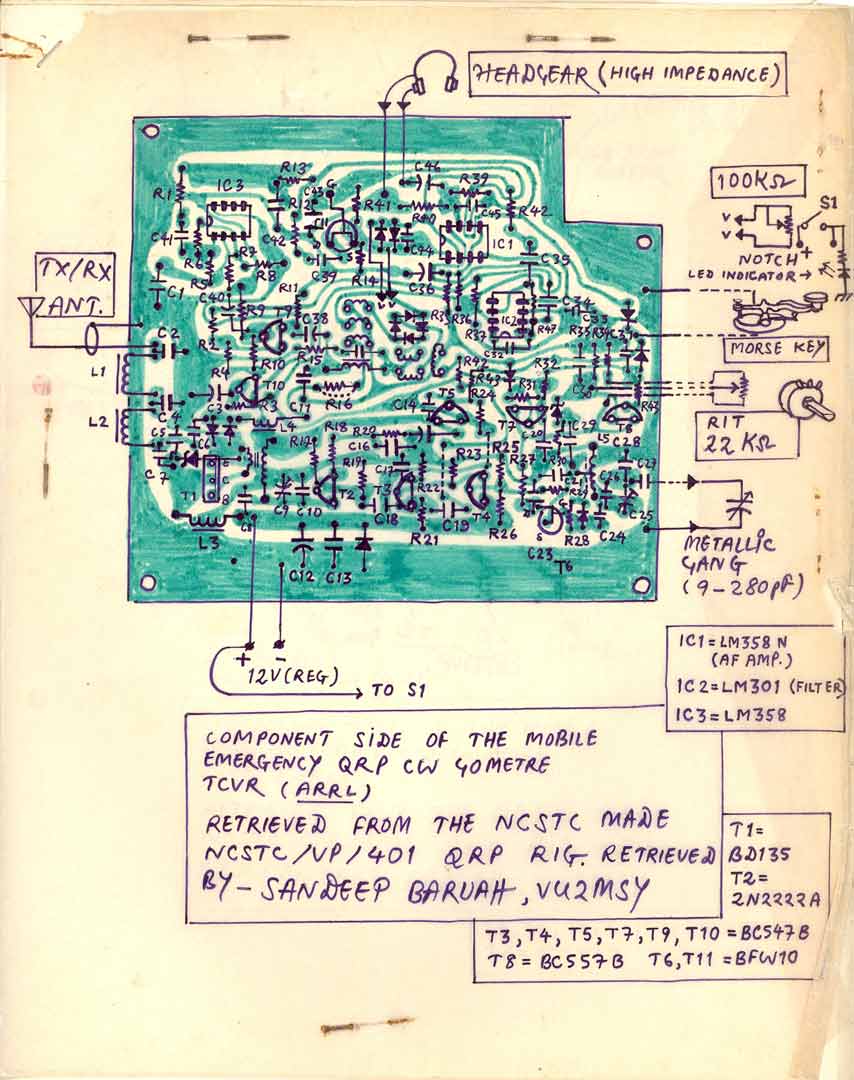 HEADGEAR (HIGH IMPEDANCE)
100KΩ
S1
V
V
+
NOTCH
LED INDICATOR→
TX/RX
ANT.
MORSE KEY
RIT
22 KΩ
METALLIC
GANG
(9-280pF)
R13
C46
R39
R1
IC3
C43
G
R41
R40
C45
R42
R12
C11
C41
C42
S
C44
IC1
R6
R5
R8
C39
R14
C36
C35
C1
C40
R11
V V
C34
R9
T9
C38
R36
R37
IC2
R47
R33
C2
R2
R10
R15
C32
R32
L1
R4
T10
R31
C3
R3
C11
R16
C14
T5
R24
T7
T8
L2
C4
L4
R18
R20
C29
L5
C28
C5
C6
R17
C16
R23
R25
C7
R19
C17
R22
R27
R30
C27
T1
E
C
B
C9
C10
T2
T3
C18
C19
T4
C25
L3
C8
R21
R26
S
C23
R28
C24
C12
C13
T6
+ -
12V(REG)
→ TO S1
IC1=LM358N
(AF AMP.)
IC2=LM301 (FILTER)
IC3=LM358
COMPONENT SIDE OF THE MOBILE
EMERGENCY QRP CW 40METRE
TCVR (ARRL)
RETRIEVED FROM THE NCSTC MADE
NCSTC/VP/401 QRP RIG. RETRIEVED
BY- SANDEEP BARUAH, VU2MSY
T1=
BD135
T2=
2N2222A
T3, T4, T5, T7, T9, T10 = BC547B
T8= BC557B T6, T11 = BFW10